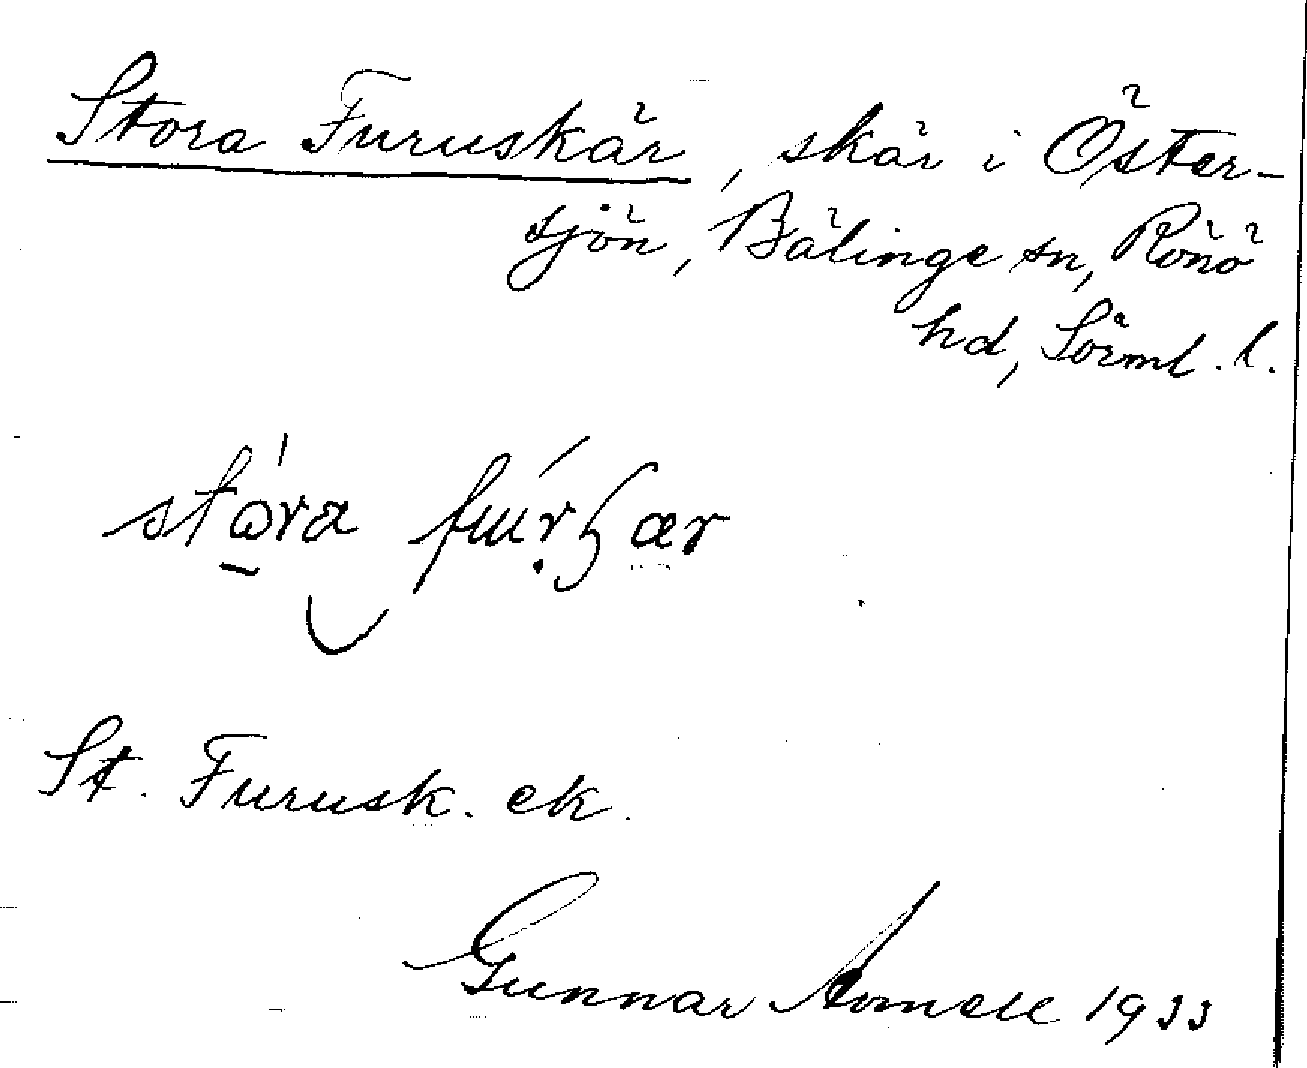 Stora Furuskär, skär i Öster-
sjön, Bälinge sn, Rönö
hd, Sörml. l.
stora
St. Furusk. ek.
Gunnar 1933